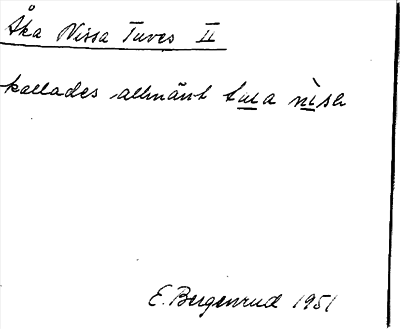 Åka Nissa Tuves II
kallades allmänt tua nìsa
E. Bergenrud 1951